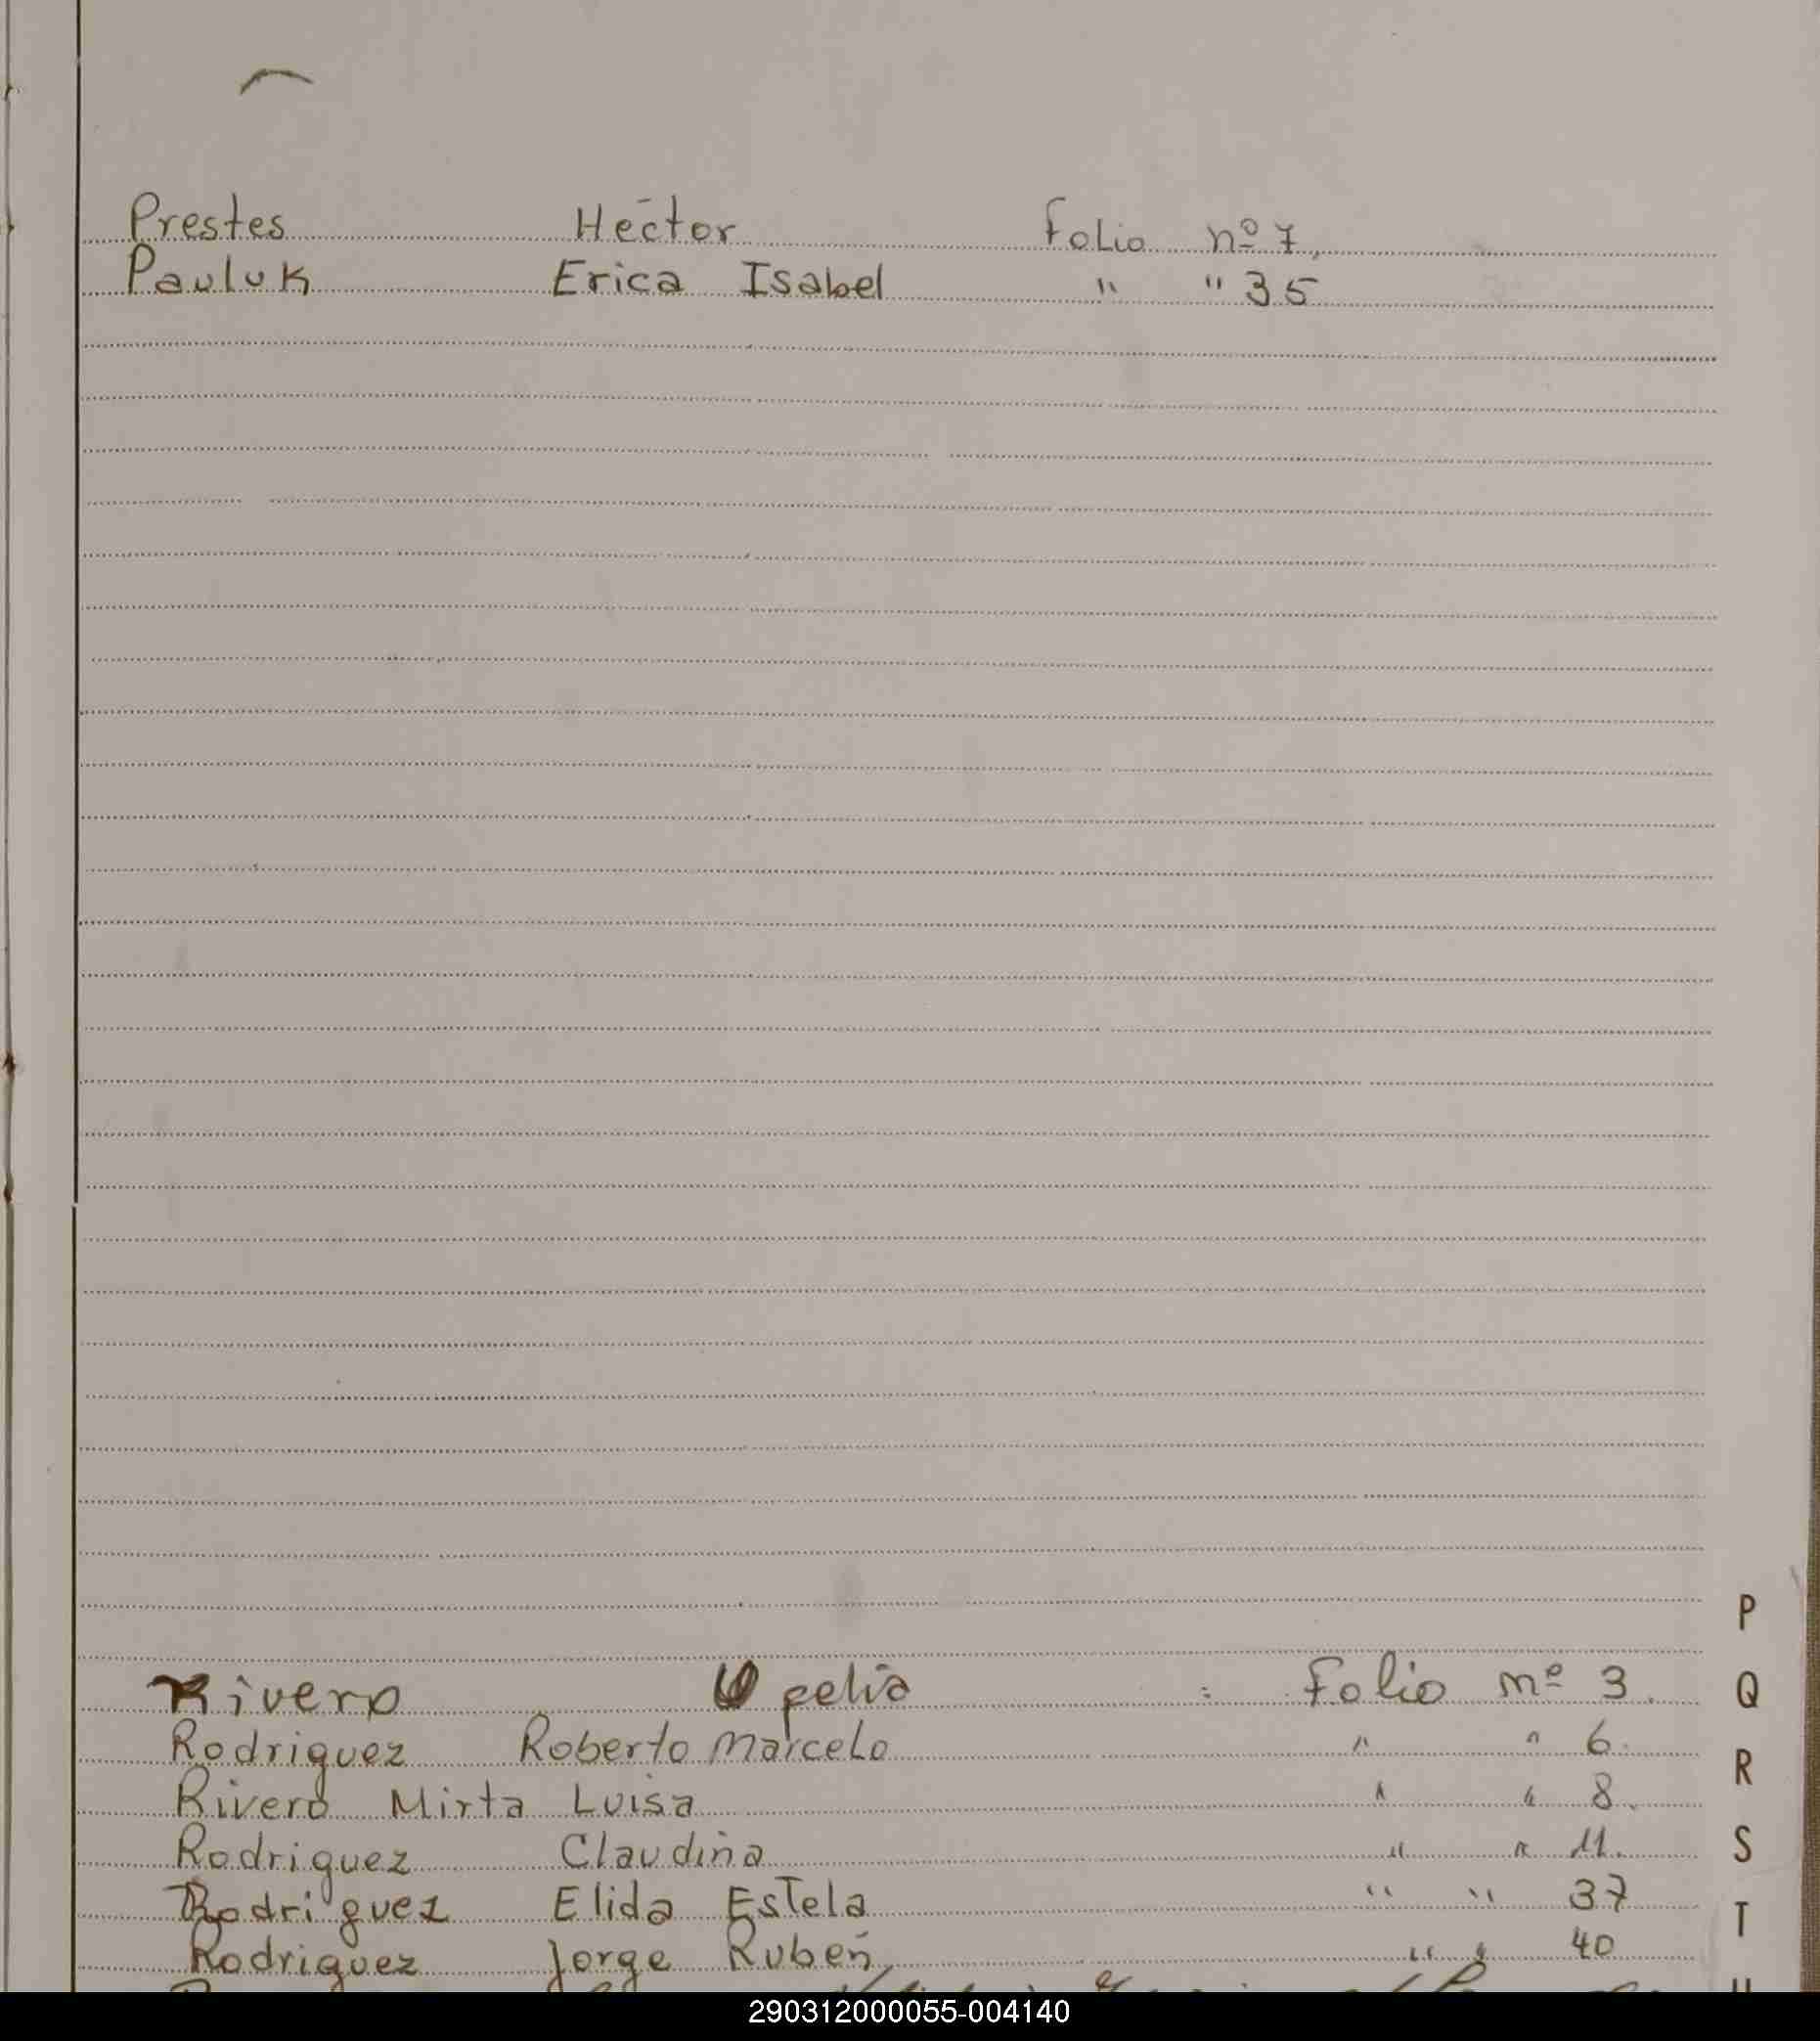 Prestes Héctor Folio nº 7,
Pauluk Erica Isabel " " 35
Rivero Folio nº 3.
Rodriguez Roberto Marcelo " " 6.
Rivero Mirta Luisa " " 8.
Rodriguez Claudina " " 11.
Rodriguez Elida Estela " " 37
Rodriguez Jorge Rubén, " " 40
P
Q
R
S
T
290312000055-004140